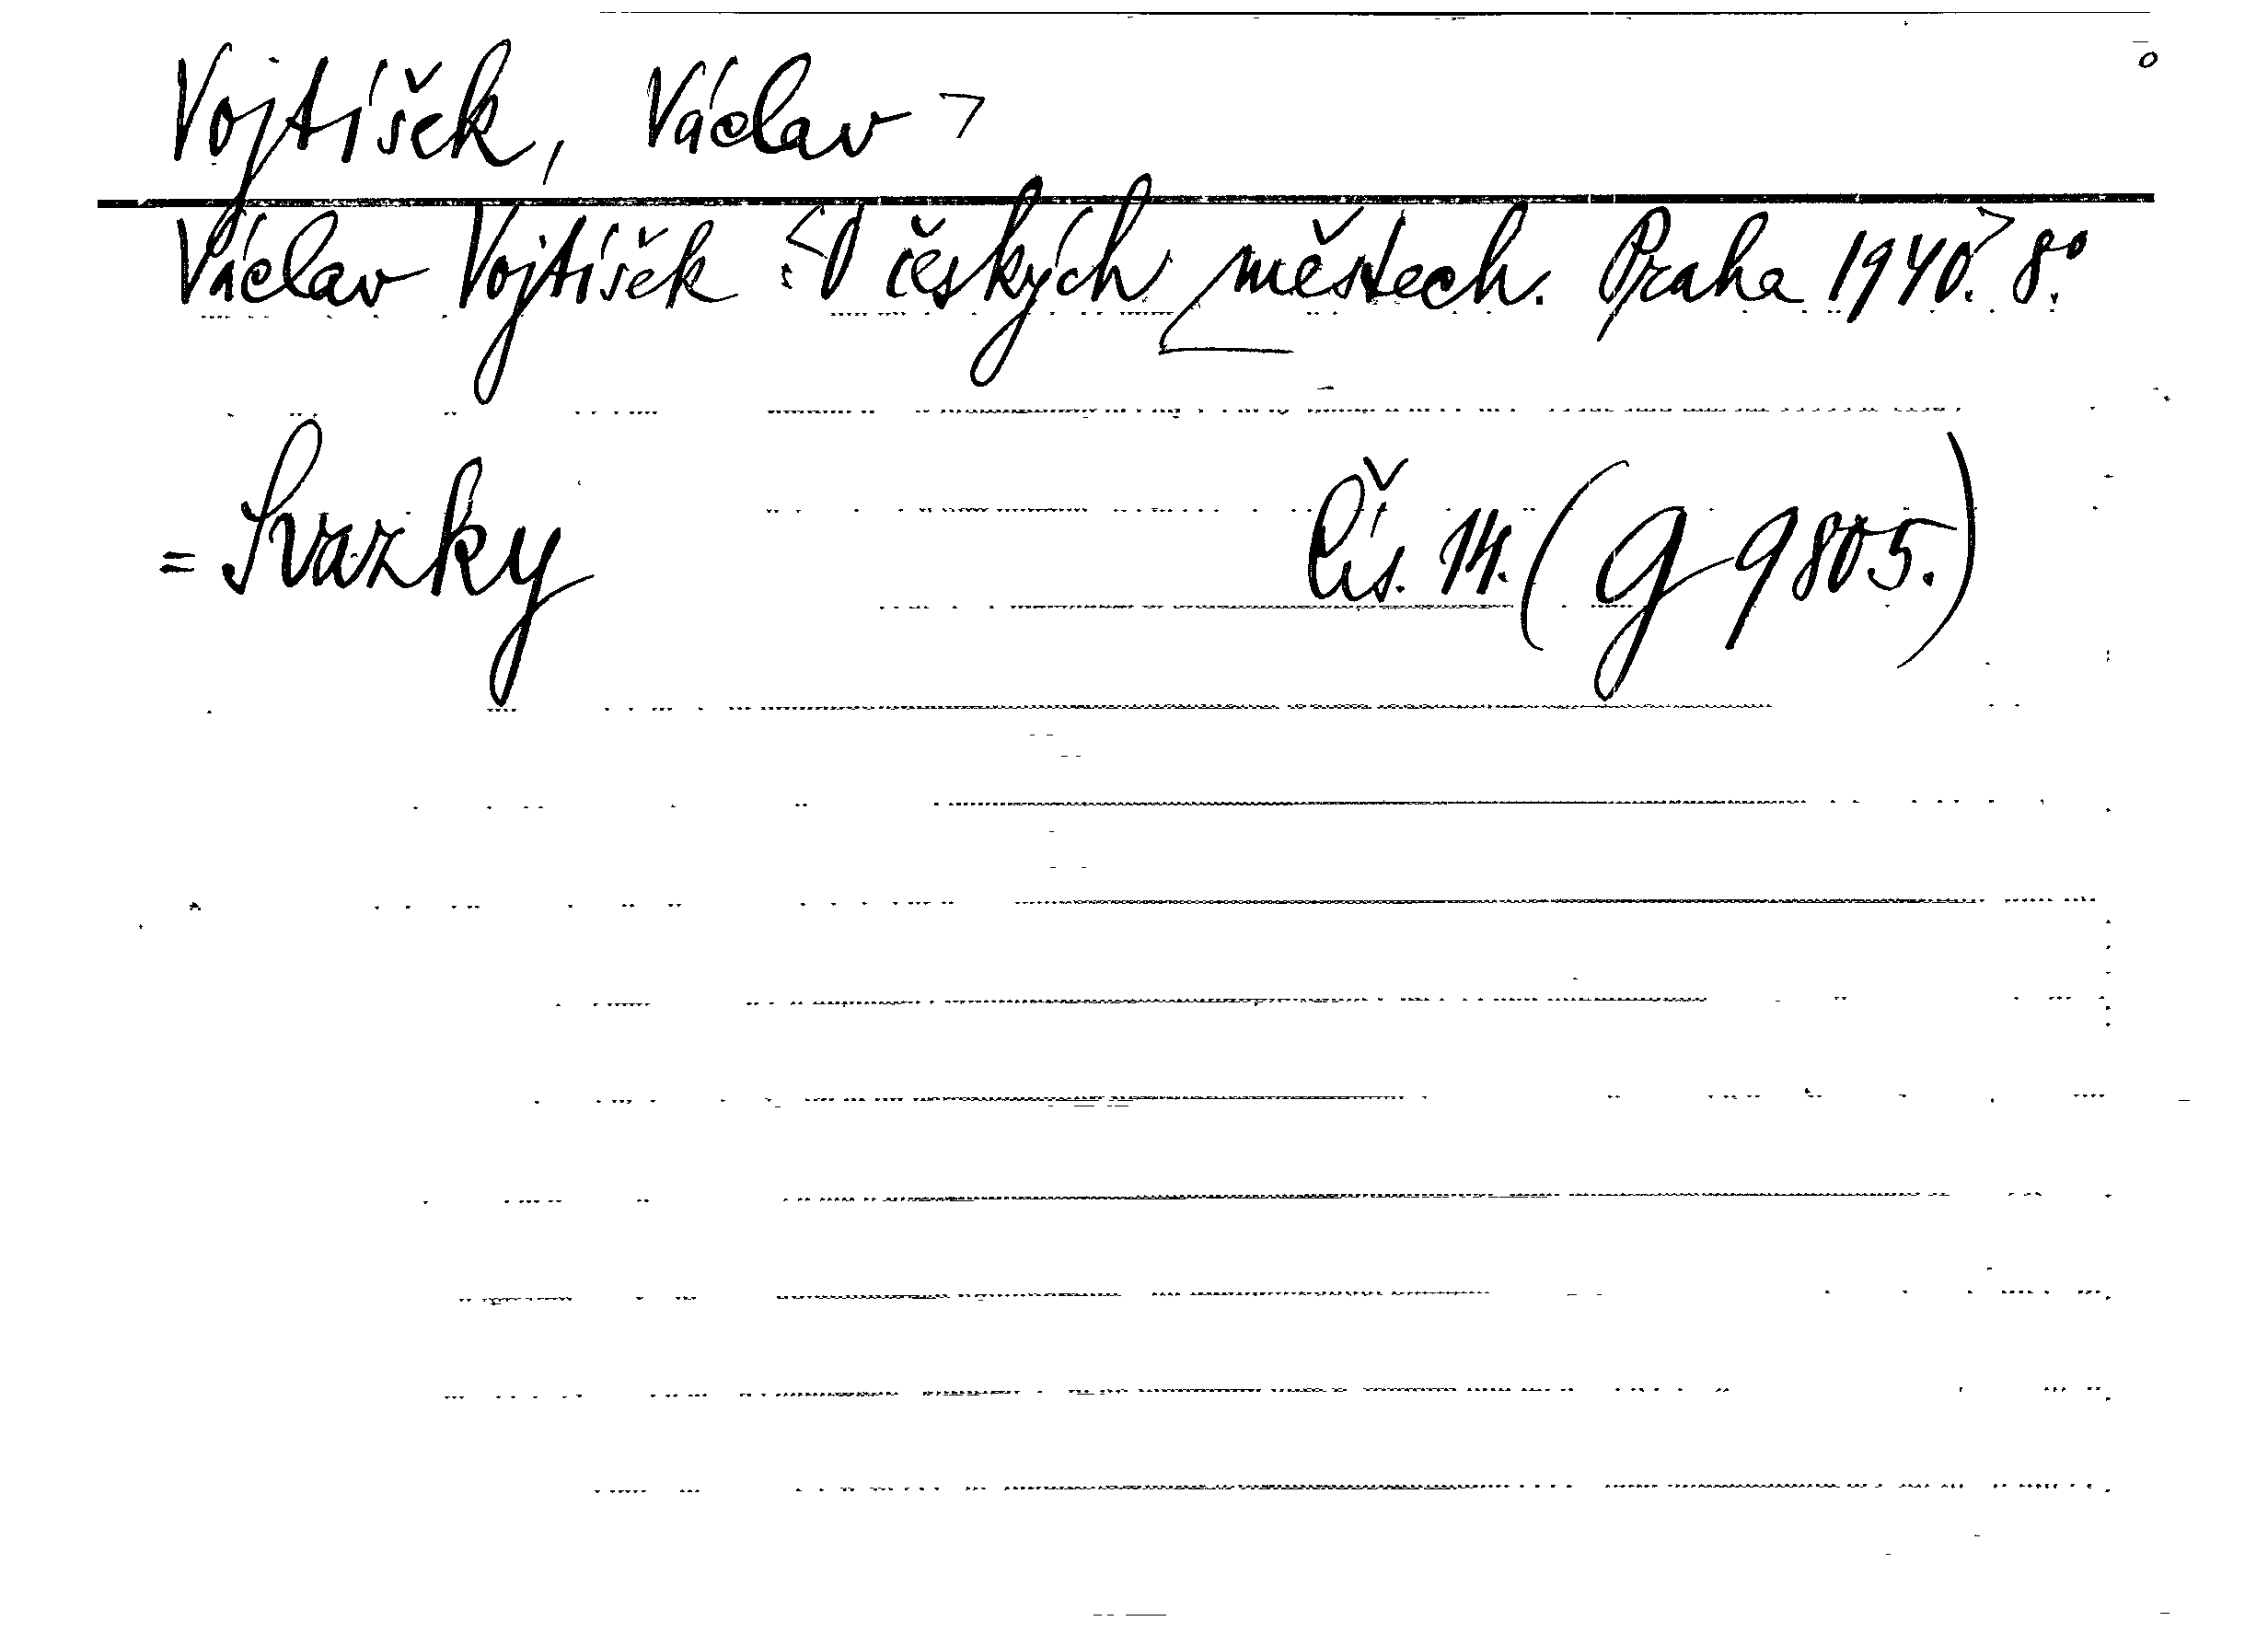 Vojtíšek, Václav
Václav Vojtíšek: O českých městech. Praha 1940. 8°.
= Svazky Čís. 14. (G 9805.)